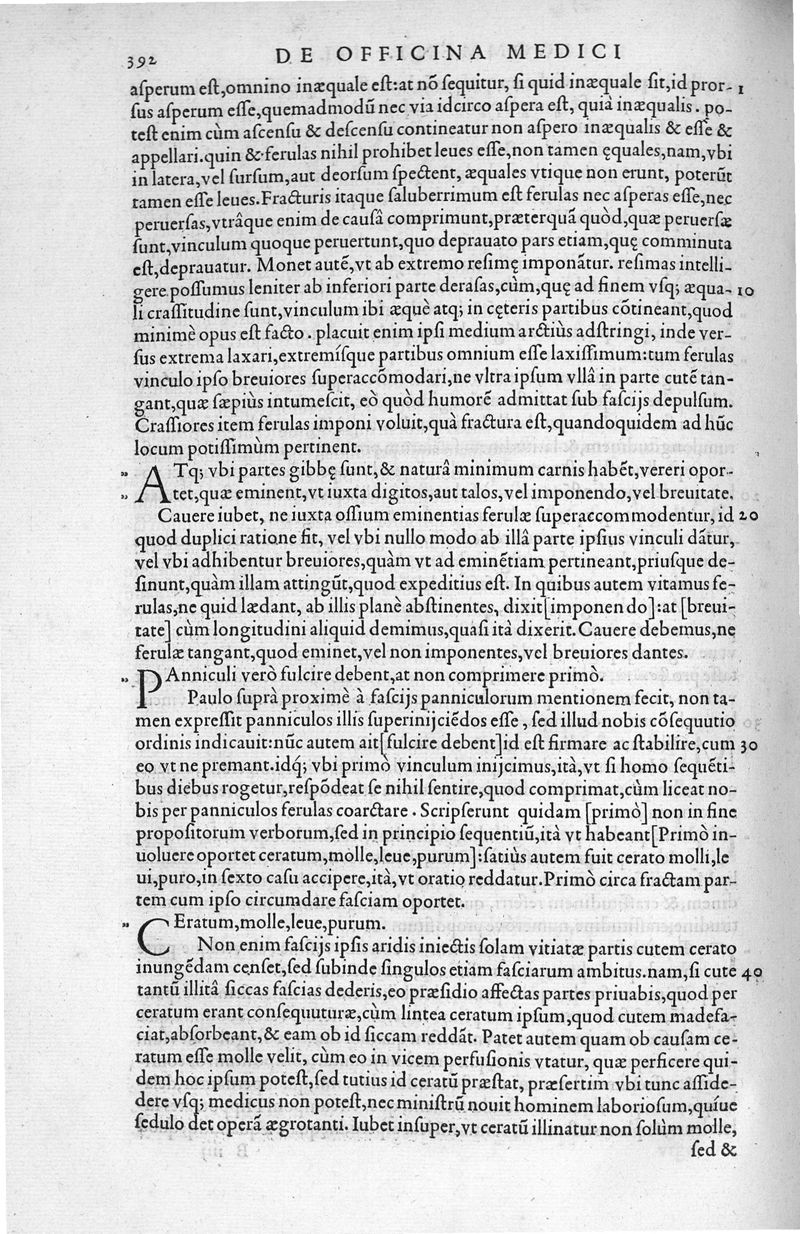 392 DE OFFICINA MEDICI
aſperum eſt,omnino inæquale eſt:at nõ ſequitur, ſi quid inæquale ſit,id pror- 1
ſus aſperum eſſe,quemadmodũ nec via idcirco aſpera eſt, quià inæqualis. po-
teſt enim cùm aſcenſu & deſcenſu contineatur non aſpero inæqualis & eſſe &
appellari.quin & ferulas nihil prohibet leues eſſe,non tamen ęquales,nam,vbi
in latera,vel ſurſum,aut deorſum ſpectent, æquales vtique non erunt, poterũt
tamen eſſe leues.Fracturis itaque ſaluberrimum eſt ferulas nec aſperas eſſe,nec
peruerſas,vtrâque enim de cauſâ comprimunt,præterquã quòd,quæ peruerſæ
ſunt,vinculum quoque peruertunt,quo deprauato pars etiam,quę comminuta
eſt,deprauatur. Monet autẽ,vt ab extremo reſimę imponãtur. reſimas intelli-
gere poſſumus leniter ab inferiori parte deraſas,cùm,quę ad finem vſq; æqua- 10
li craſſitudine ſunt,vinculum ibi æquè atq; in cęteris partibus cõtineant,quod
minimè opus eſt facto. placuit enim ipſi medium arctiùs adſtringi, inde ver-
ſus extrema laxari,extremíſque partibus omnium eſſe laxiſſimum:tum ferulas
vinculo ipſo breuiores ſuperaccõmodari,ne vltra ipſum vllâ in parte cutẽ tan-
gant,quæ ſæpiùs intumeſcit, eò quòd humorẽ admittat ſub faſcijs depulſum.
Craſſiores item ferulas imponi voluit,quà fractura eſt,quandoquidem ad hũc
locum potiſſimùm pertinent.
„ ATq; vbi partes gibbę ſunt,& naturâ minimum carnis habẽt,vereri opor-
„ tet,quæ eminent,vt iuxta digitos,aut talos,vel imponendo,vel breuitate.
Cauere iubet, ne iuxta oſſium eminentias ferulæ ſuperaccommodentur, id 20
quod duplici ratione fit, vel vbi nullo modo ab illâ parte ipſius vinculi dãtur,
vel vbi adhibentur breuiores,quàm vt ad eminẽtiam pertineant,priuſque de-
ſinunt,quàm illam attingũt,quod expeditius eſt. In quibus autem vitamus fe-
rulas,ne quid lædant, ab illis planè abſtinentes, dixit[imponendo]:at [breui-
tate] cùm longitudini aliquid demimus,quaſi ità dixerit.Cauere debemus,ne
ferulæ tangant,quod eminet,vel non imponentes,vel breuiores dantes.
„ PAnniculi verò fulcire debent,at non comprimere primò.
Paulo ſuprà proximè à faſcijs panniculorum mentionem fecit, non ta-
men expreſſit panniculos illis ſuperinijciẽdos eſſe, ſed illud nobis cõſequutio
ordinis indicauit:nũc autem ait[fulcire debent]id eſt firmare ac ſtabilire,cum 30
eo vt ne premant.idq́; vbi primò vinculum inijcimus,ità,vt ſi homo ſequẽti-
bus diebus rogetur,reſpõdeat ſe nihil ſentire,quod comprimat,cùm liceat no-
bis per panniculos ferulas coarctare. Scripſerunt quidam [primò] non in fine
propoſitorum verborum,ſed in principio ſequentiũ,ità vt habeant[Primò in-
uoluere oportet ceratum,molle,leue,purum]:ſatiùs autem fuit cerato molli,le
ui,puro,in ſexto caſu accipere,ità,vt oratio reddatur.Primò circa fractam par-
tem cum ipſo circumdare faſciam oportet.
„ CEratum,molle,leue,purum.
Non enim faſcijs ipſis aridis iniectis ſolam vitiatæ partis cutem cerato
inungẽdam cenſet,ſed ſubinde ſingulos etiam faſciarum ambitus.nam,ſi cute 40
tantũ illitâ ſiccas faſcias dederis,eo præſidio affectas partes priuabis,quod per
ceratum erant conſequuturæ,cùm lintea ceratum ipſum,quod cutem madefa-
ciat,abſorbeant,& eam ob id ſiccam reddãt. Patet autem quam ob cauſam ce-
ratum eſſe molle velit, cùm eo in vicem perfuſionis vtatur, quæ perficere qui-
dem hoc ipſum poteſt,ſed tutius id ceratũ præſtat, præſertim vbi tunc aſſide-
dere vſq; medicus non poteſt,nec miniſtrũ nouit hominem laborioſum,quíue
ſedulo det operã ægrotanti. Iubet inſuper,vt ceratũ illinatur non ſolùm molle,
ſed &